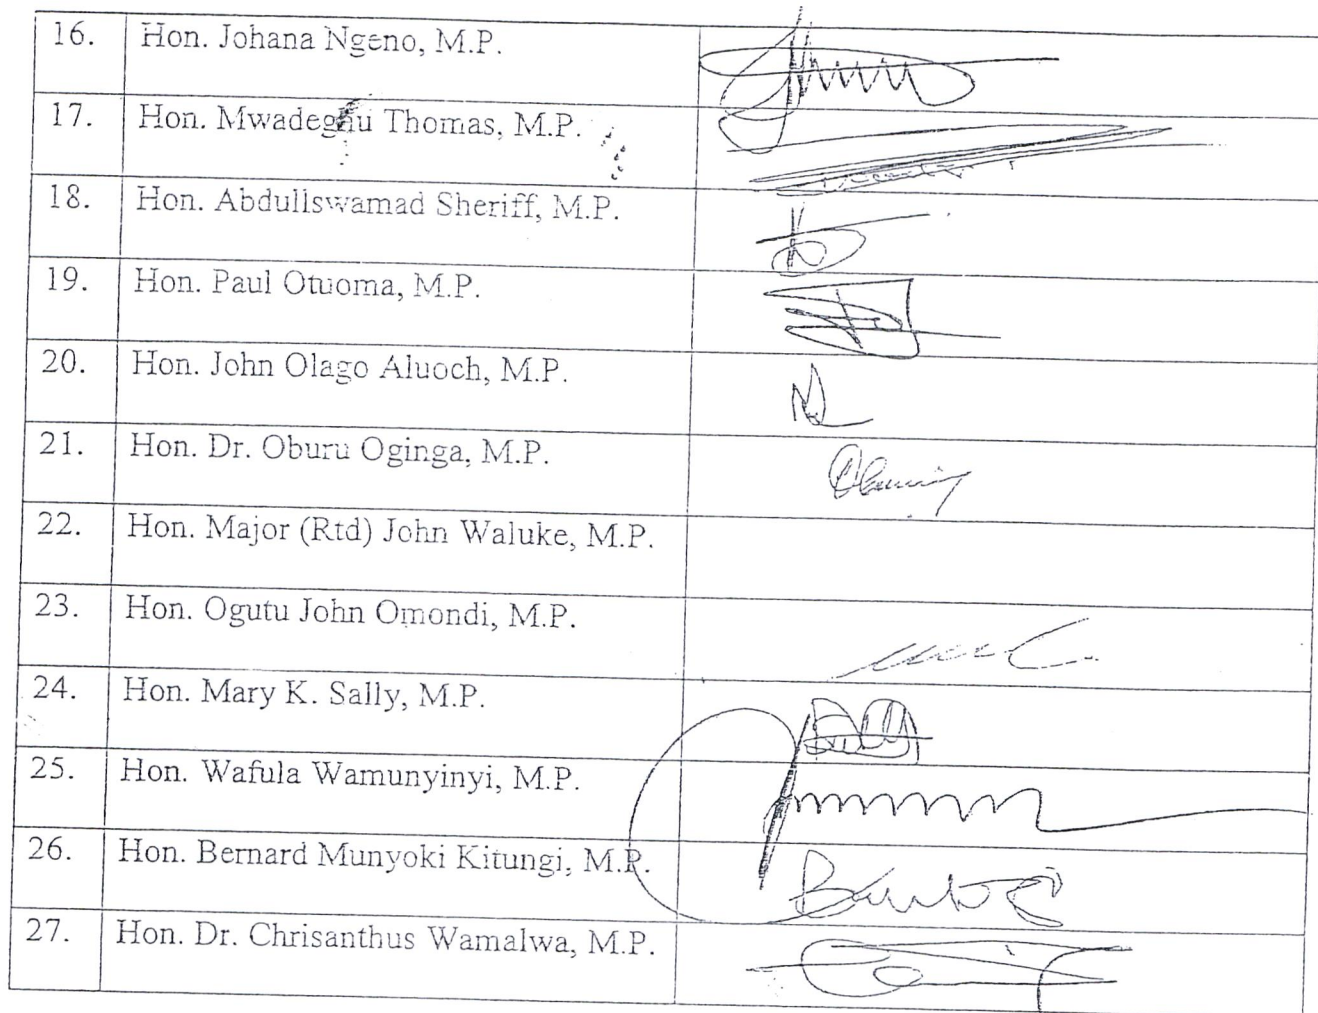 16. Hon. Johana Ngeno, M.P.
17. Hon. Mwadeghu Thomas, M.P.
18. Hon. Abdullswamad Sheriff, M.P.
19. Hon. Paul Otuoma, M.P.
20. Hon. John Olago Aluoch, M.P.
21. Hon. Dr. Oburu Oginga, M.P.
22. Hon. Major (Rtd) John Waluke, M.P.
23. Hon. Ogutu John Omondi, M.P.
24. Hon. Mary K. Sally, M.P.
25. Hon. Wafula Wamunyinyi, M.P.
26. Hon. Bernard Munyoki Kitungi, M.P.
27. Hon. Dr. Chrisanthus Wamalwa, M.P.